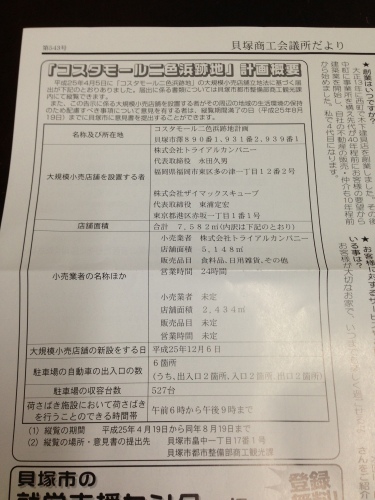 第543号
貝塚商工会議所だより
「コスタモール二色浜跡地」計画概要
平成25年4月5日に「コスタモール二色浜跡地」の大規模小売店舗立地法に基づく届
出が下記のとおりありました。届出に係る書類については貝塚市都市整備部商工観光課
内にて縦覧できます。
また、この告示に係る大規模小売店舗を設置する者がその周辺の地域の生活環境の保持
のため配慮すべき事項について意見を有する者は、縦覧期間満了の日(平成25年8月
19日)までに貝塚市に意見書を提出することができます。
名称及び所在地
コスタモール二色浜跡地計画
貝塚市澤890番1,931番2,939番1
大規模小売店舗を設置する者
株式会社トライアルカンパニー
代表取締役 永田久男
福岡県福岡市東区多の津一丁目12番2号
株式会社ザイマックスキューブ
代表取締役 東浦定宏
東京都港区赤坂一丁目1番1号
店舗面積
合計 7,582㎡(内訳は下記のとおり)
小売業者の名称ほか
小売業者 株式会社トライアルカンパニー
店舗面積 5,148㎡
販売品目 食料品、日用雑貨、その他
営業時間 24時間
小売業者 未定
店舗面積 2,434㎡
販売品目 未定
営業時間 未定
大規模小売店舗の新設をする日
平成25年12月6日
駐車場の自動車の出入口の数
6箇所
(うち、出入口2箇所、入口2箇所、出口2箇所)
駐車場の収容台数
527台
荷さばき施設において荷さばき
を行うことのできる時間帯
午前6時から午後9時まで
(1) 縦覧の期間 平成25年4月19日から同年8月19日まで
(2) 縦覧の場所・意見書の提出先 貝塚市畠中一丁目17番1号
貝塚市都市整備部商工観光課
★創業はいつですか?
大正13年に西町で木下建具店を創業しました。その後
建築業を開始し、自社の不動産の販売・仲介も10年程前
から始めました。私で4代目になります。
貝塚市の
登録